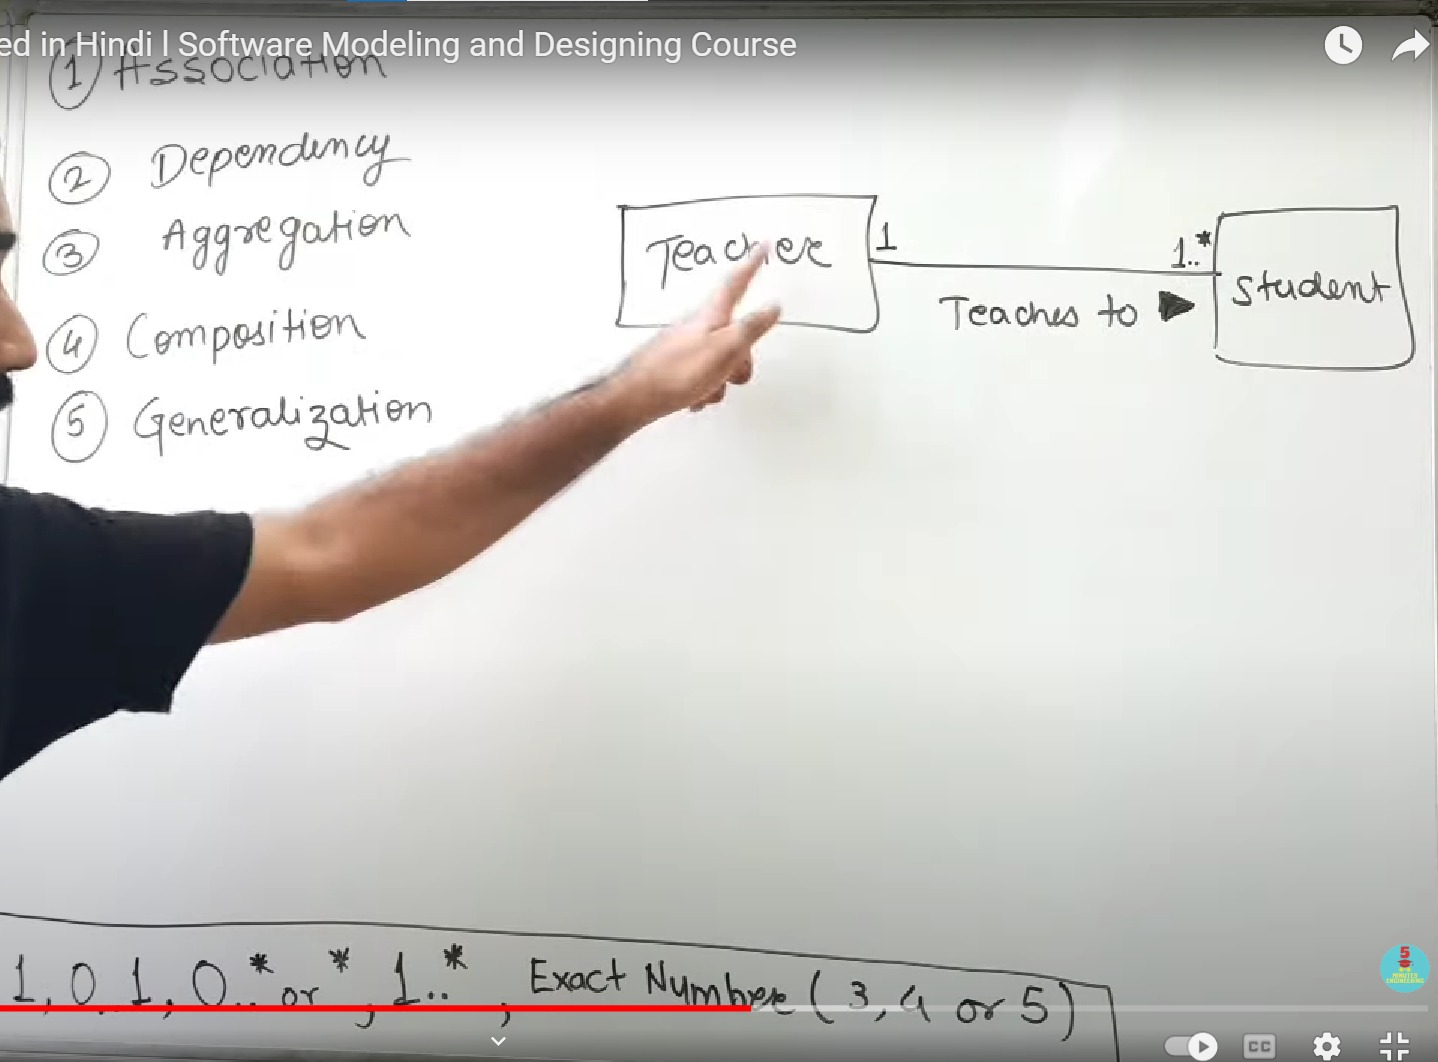 ed in Hindi l Software Modeling and Designing Course
1 Association
2 Dependency
3 Aggregation
4 Composition
5 Generalization
Teacher
1
1..*
Student
Teaches to ▶
1, 0..1, 0..* or *, 1..*, Exact Number (3, 4 or 5)
5
MINUTES
ENGINEERING
CC